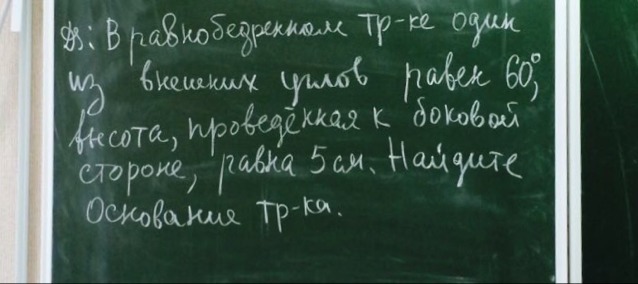 Дз: В равнобедренном тр-ке один
из внешних углов равен 60°,
высота, проведённая к боковой
стороне, равна 5 см. Найдите
Основание тр-ка.